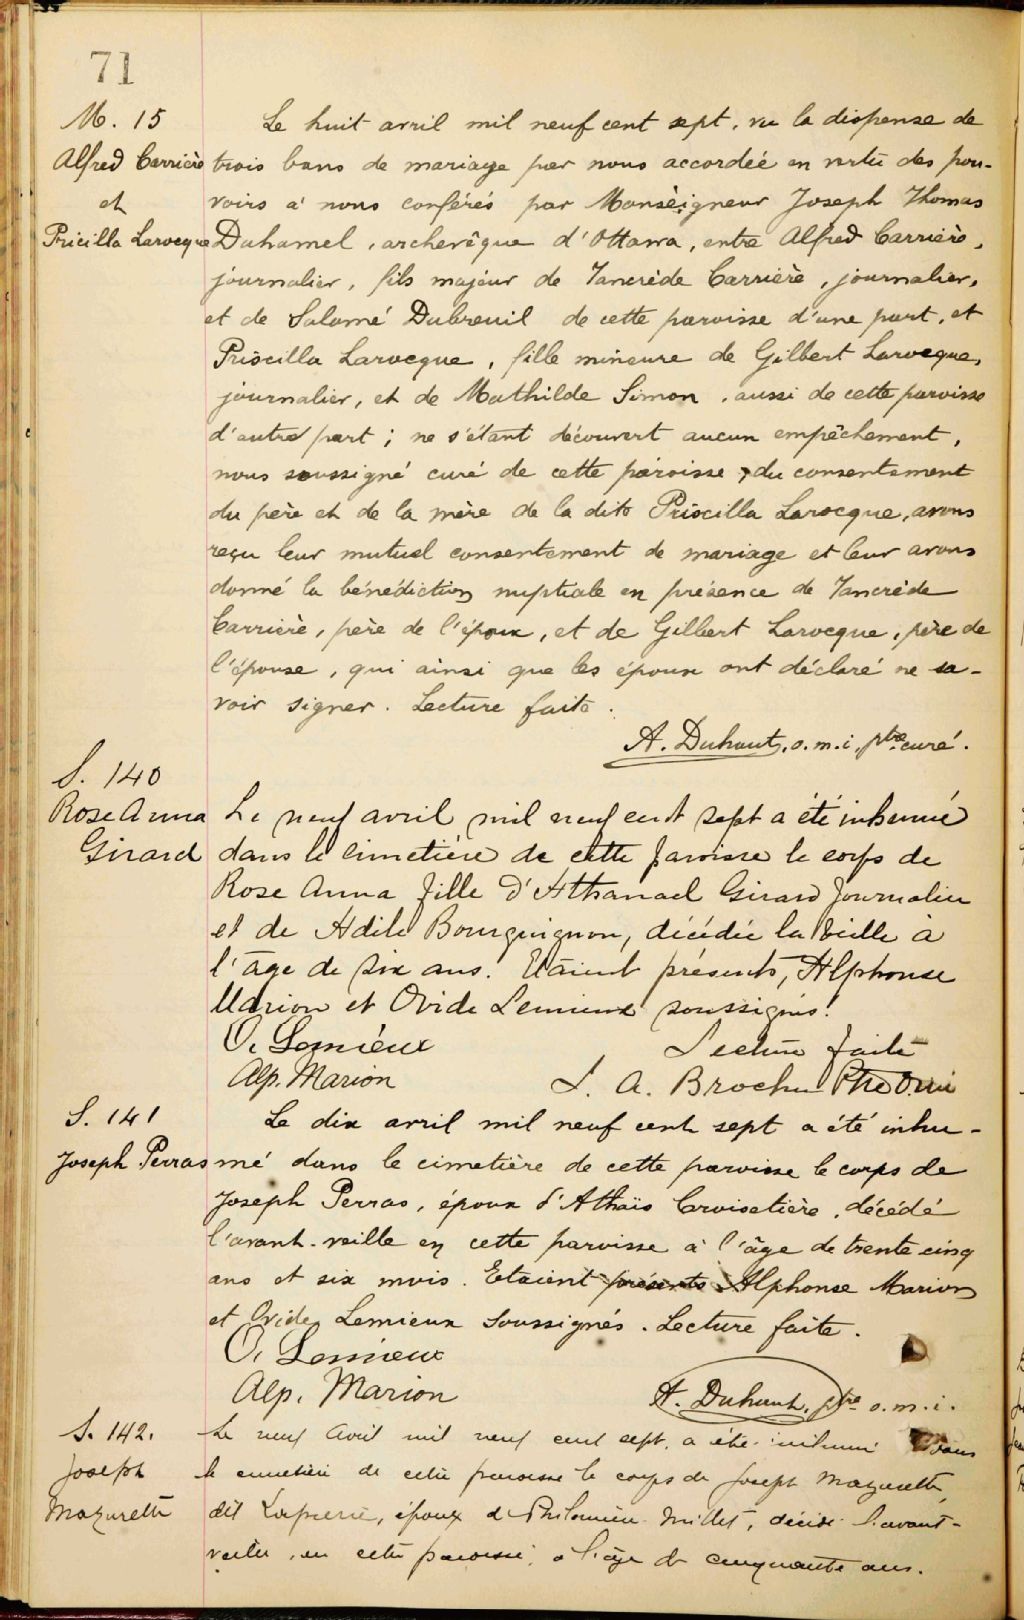 71
M. 15
Alfred Carrière
et
Pricilla Larocque
Le huit avril mil neuf cent sept, vu la dispense de
trois bans de mariage par nous accordée en vertu des pou-
voirs à nous conférés par Monseigneur Joseph Thomas
Duhamel, archevêque d'Ottawa, entre Alfred Carrière,
journalier, fils majeur de Tancrède Carrière, journalier,
et de Salomé Dubreuil de cette paroisse d'une part, et
Priscilla Larocque, fille mineure de Gilbert Larocque,
journalier, et de Mathilde Simon, aussi de cette paroisse
d'autre part; ne s'étant découvert aucun empêchement,
nous soussigné curé de cette paroisse, du consentement
du père et de la mère de la dite Priscilla Larocque, avons
reçu leur mutuel consentement de mariage et leur avons
donné la bénédiction nuptiale en présence de Tancrède
Carrière, père de l'époux, et de Gilbert Larocque, père de
l'épouse, qui ainsi que les époux ont déclaré ne sa-
voir signer. Lecture faite.
A. Duhaut, o.m.i. ptre curé.
S. 140
Rose Anna
Girard
Le neuf avril mil neuf cent sept a été inhumé
dans le cimetière de cette paroisse le corps de
Rose Anna fille d'Athanael Girard journalier
et de Adile Bourguignon, décédée la veille à
l'âge de six ans. Etaient présents, Alphonse
Marion et Ovide Lemieux soussignés.
O. Lemieux
Lecture faite
Alp. Marion
L. A. Brochu Ptre O.m.i
S. 141
Joseph Perras
Le dix avril mil neuf cent sept a été inhu-
mé dans le cimetière de cette paroisse le corps de
Joseph Perras, époux d'Athaïs Croisetière, décédé
l'avant-veille en cette paroisse à l'âge de trente cinq
ans et six mois. Etaient présents Alphonse Marion
et Ovide Lemieux soussignés. Lecture faite.
O. Lemieux
Alp. Marion
A. Duhaut, ptre o.m.i.
S. 142.
Joseph
Mazurette
Le neuf Avril mil neuf cent sept, a été inhumé dans
le cimetière de cette paroisse le corps de Joseph Mazurette
dit Lapierre, époux de Philomène Millet, décédé l'avant-
veille, en cette paroisse, à l'âge de cinquante ans.